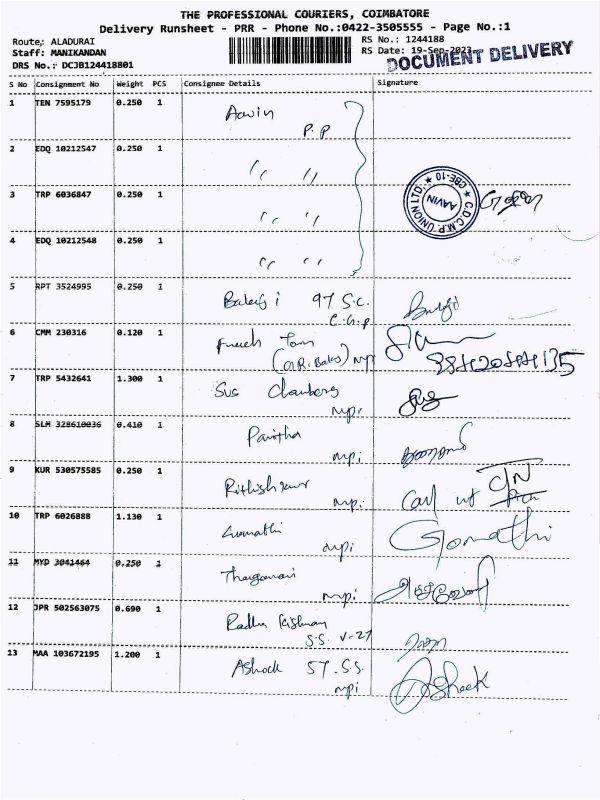 THE PROFESSIONAL COURIERS, COIMBATORE
Delivery Runsheet - PRR - Phone No.:0422-3505555 - Page No.:1
Route: ALADURAI
RS No.: 1244188
Staff: MANIKANDAN
RS Date: 19-Sep-2023
DRS No.: DCJB124418801
DOCUMENT DELIVERY
S No Consignment No Weight PCS Consignee Details Signature
1 TEN 7595179 0.250 1 Aavin
P.P
2 EDQ 10212547 0.250 1 " "
3 TRP 6036847 0.250 1 " "
C.D.C.M.P. UNION LTD. ★ CBE-10 ★
AAVIN
4 EDQ 10212548 0.250 1 " "
5 RPT 3524995 0.250 1 Balaji 97 S.C.
C.G.P Balaji
6 CMM 230316 0.120 1
mpi
7 TRP 5432641 1.300 1 Sus
mpi
8 SLM 328610036 0.410 1 Pavitha
mpi
9 KUR 530575585 0.250 1
mpi C/N
10 TRP 6026888 1.130 1 Gomathi
mpi Gomathi
11 MYD 3041464 0.250 1
mpi
12 JPR 502563075 0.690 1 Radha Krishnan
S.S. V-27
13 MAA 103672195 1.200 1 Ashock 57.S.S.
mpi Asheek